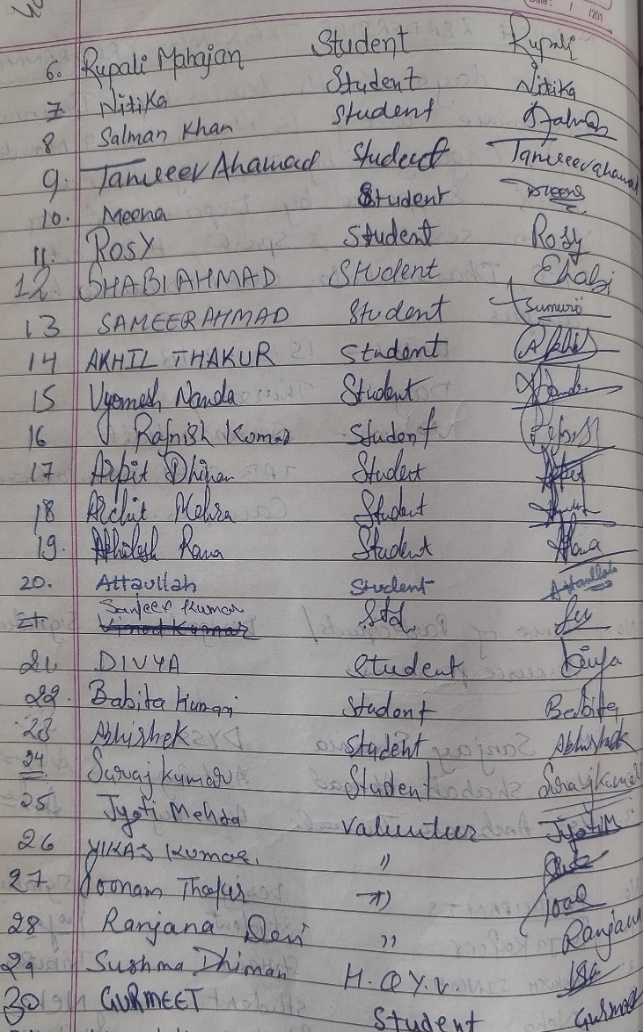 6. Rupali Mahajan Student Rupali
7 Nitika Student Nitika
8 Salman Khan Student Salman
9. Tanveer Ahamad Student Tanveer ahamad
10. Meena Student Meena
11. ROSY Student Rosy
12 SHABI AHMAD Student Shabi
13 SAMEER AHMAD Student
14 AKHIL THAKUR Student Akhil
15 Vyomesh Nanda Student
16 Rajnish Kumar Student
17 Arpit Dhiman Student Arpit
18 Archit Mehra Student
19. Akhilesh Rana Student Rana
20. Attaullah Student Attaullah
Sanjeev Kumar Std
21. Vinod Kumar
21 DIVYA Student Divya
22. Babita Kumari Student Babita
23 Abhishek Student Abhishek
24 Suraj Kumar Student Suraj Kumar
25 Jyoti Mehda Valunteer Jyoti M
26 VIKAS Kumar, "
27 Poonam Thakur "
28 Ranjana Devi " Ranjana
29 Sushma Dhiman H.O Y.V
30 GURMEET Student Gurmeet